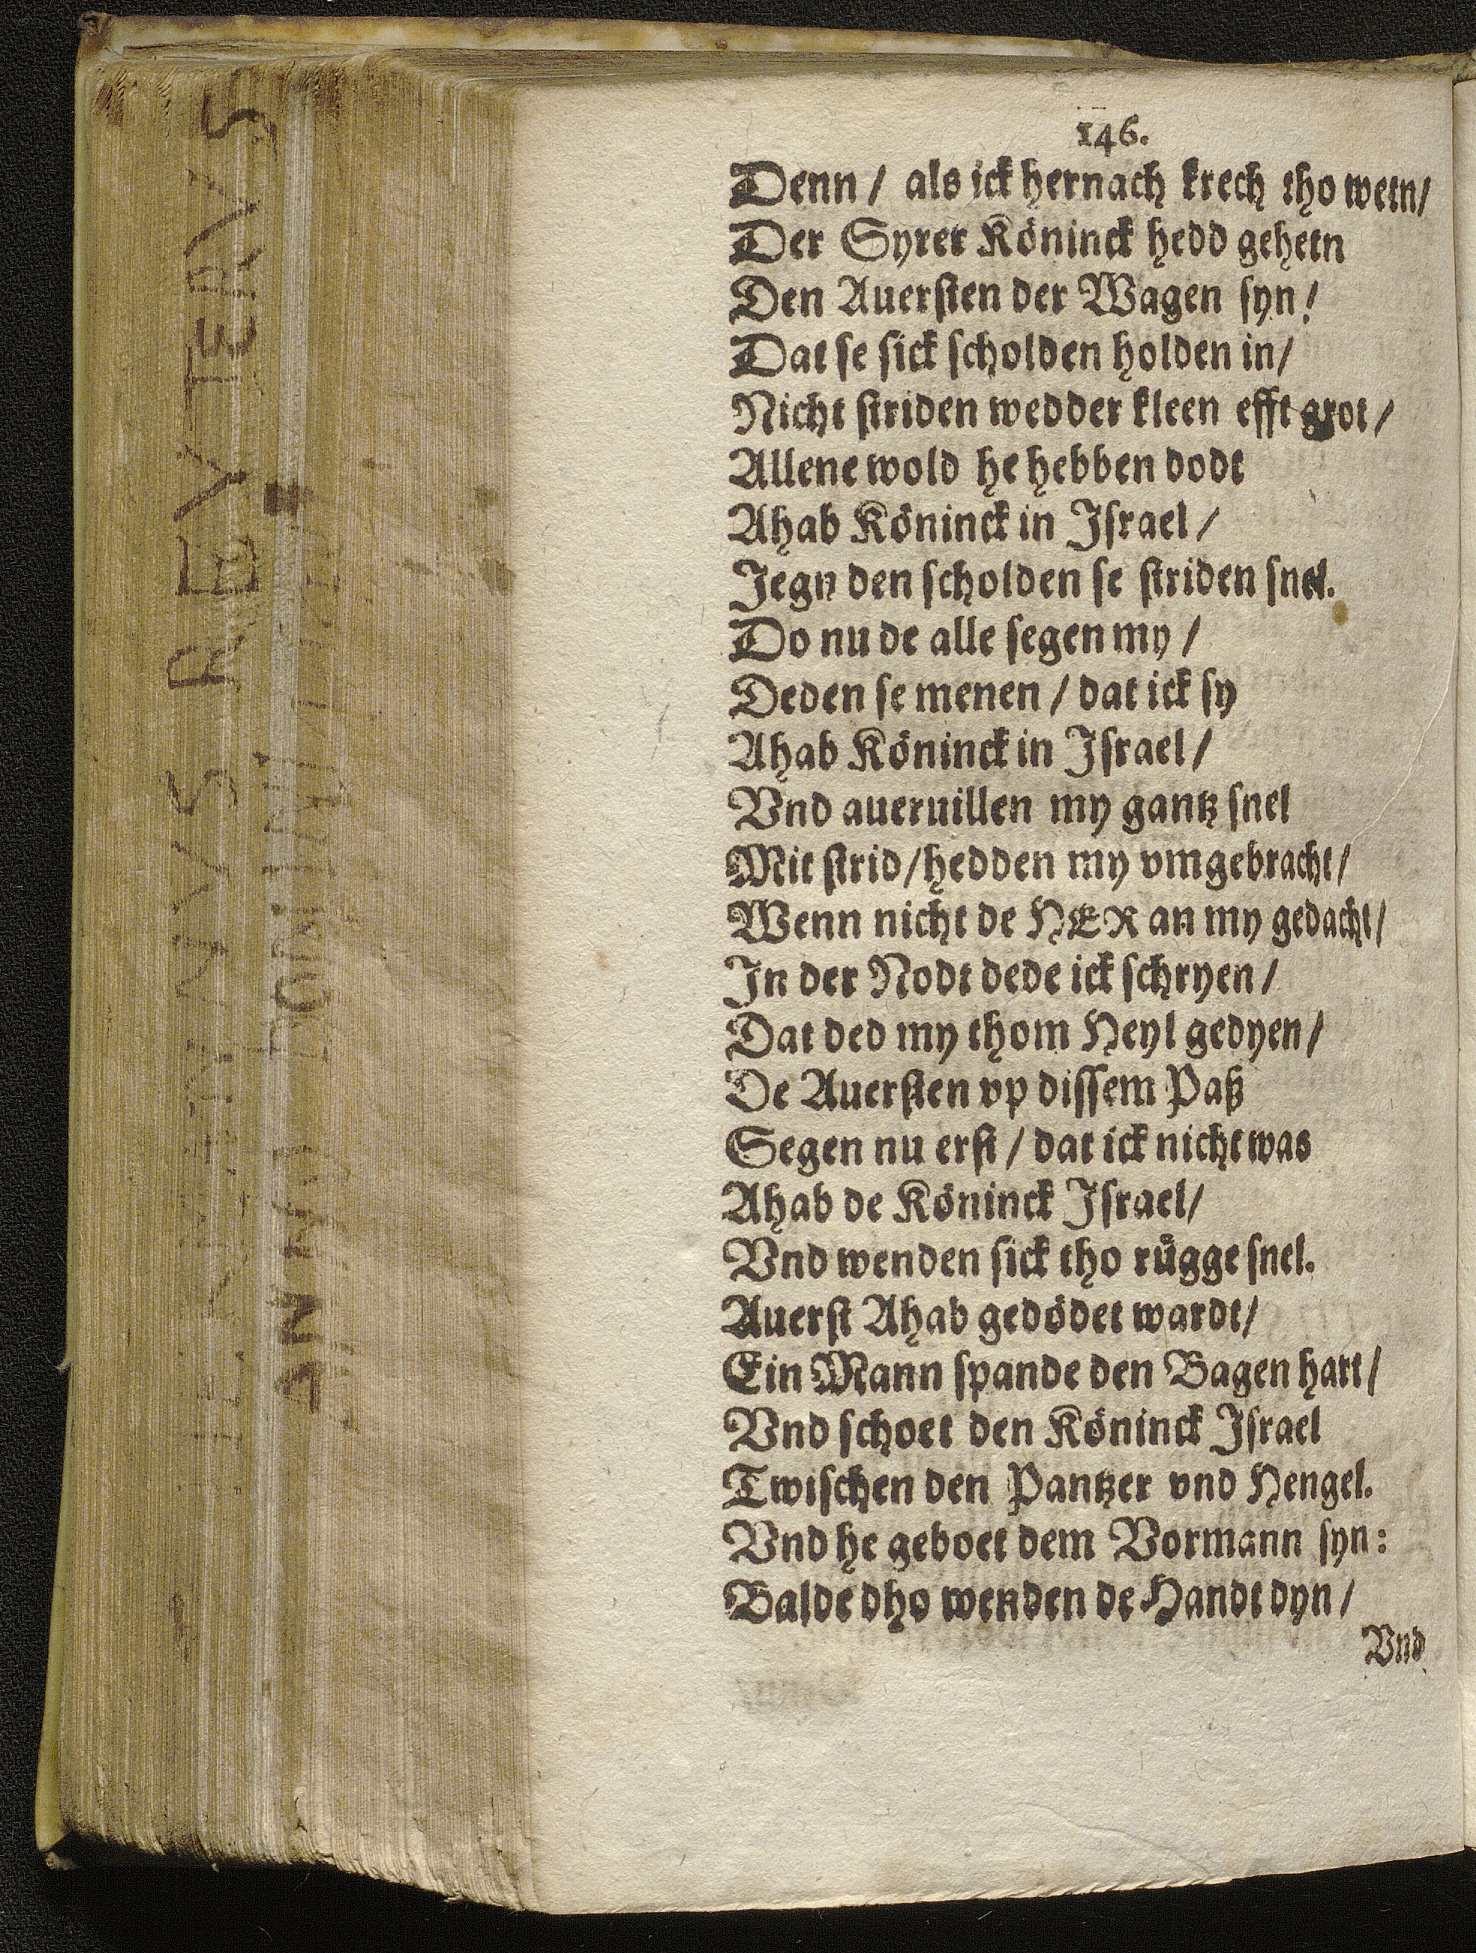 146.
Denn / als ick hernach krech tho wetn/
Der Syrer Köninck hedd gehetn
Den Auersten der Wagen syn!
Dat se sick scholden holden in/
Nicht striden wedder kleen efft grot /
Allene wold he hebben dodt
Ahab Köninck in Israel /
Jegn den scholden se striden snel.
Do nu de alle segen my /
Deden se menen / dat ick sy
Ahab Köninck in Israel /
Vnd aueruillen my gantz snel
Mit strid/hedden my vmgebracht/
Wenn nicht de HER an my gedacht/
In der Nodt dede ick schryen /
Dat ded my thom Heyl gedyen/
De Auersten vp dissem Paß
Segen nu erst / dat ick nicht was
Ahab de Köninck Israel/
Vnd wenden sick tho rügge snel.
Auerst Ahab gedödet wardt/
Ein Mann spande den Bagen hart/
Vnd schoet den Köninck Israel
Twischen den Pantzer vnd Hengel.
Vnd he geboet dem Vormann syn:
Balde dho wenden de Handt dyn /
Vnd
REVTERVS
AN
DOMINI